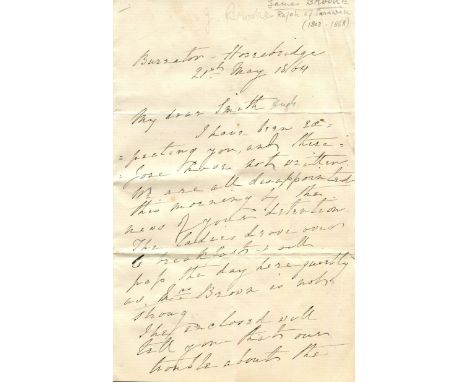 James Brooke
J Brooke Rajah of Sarawak
(1803-1868)
Burrator - Horrabridge
21st May 1864
My dear Smith
I have been ex=
=pecting you, and there=
=fore have not written
We are all disappointed
this morning by the
news of your detention.
The ladies drove over
to breakfast & will
pass the day here quietly
as Brown is not
strong.
The enclosed will
tell you that our
trouble about the